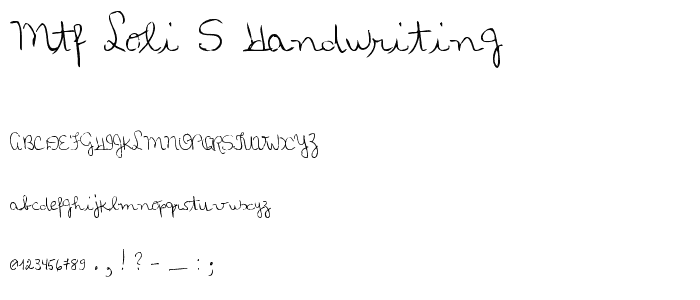 Mtf Loli S Handwriting
ABCDEFGHIJKLMNOPQRSTUVWXYZ
abcdefghijklmnopqrstuvwxyz
0123456789 . , ! ? - _ : ;